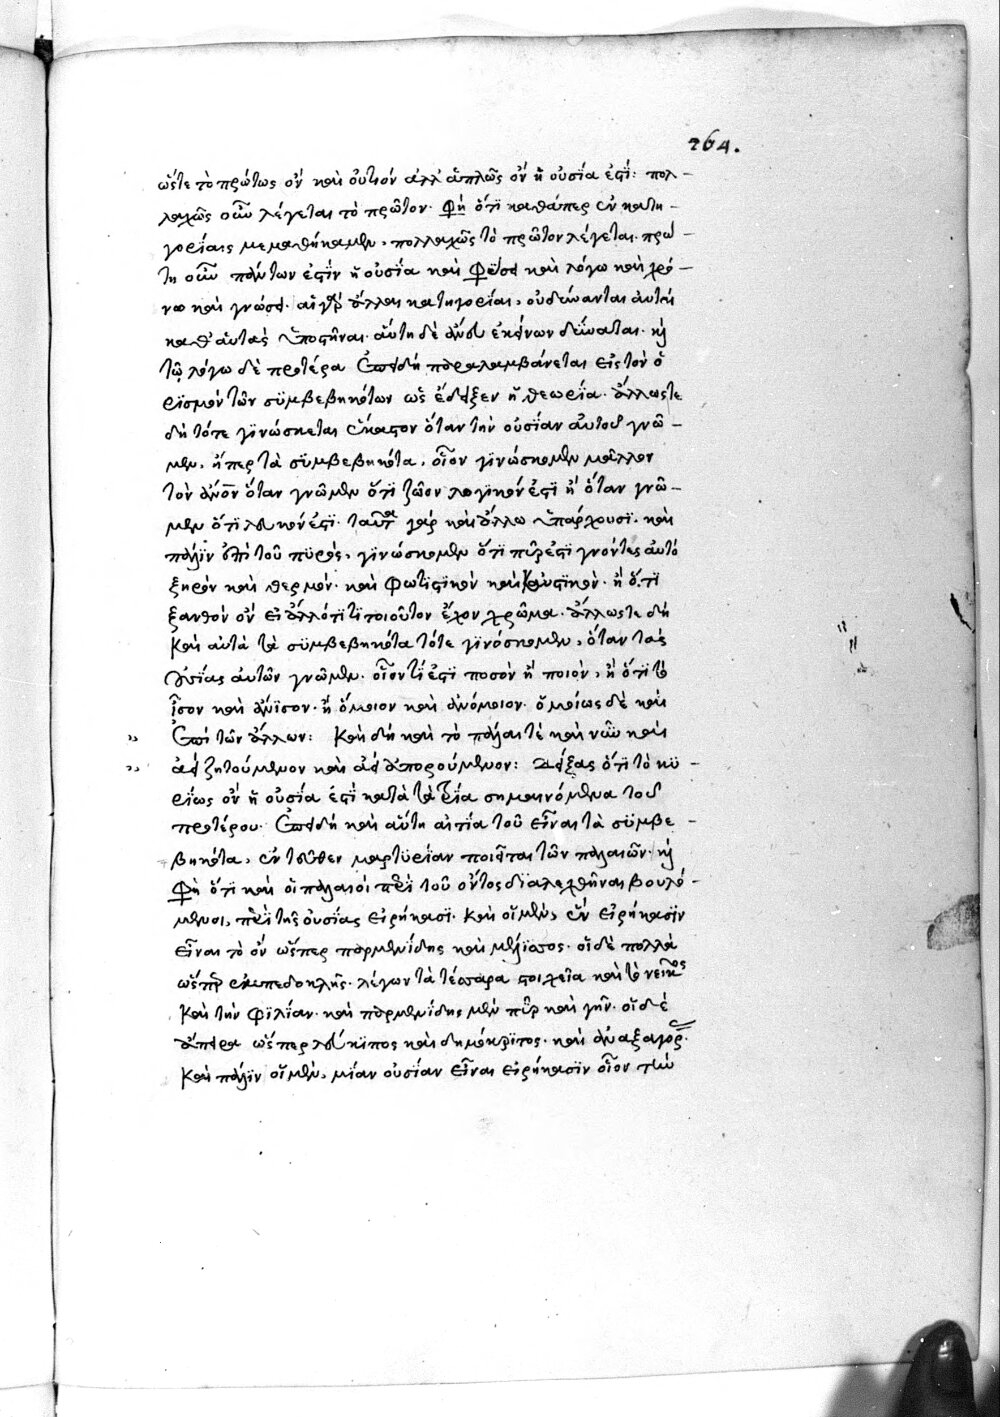 264.
ὥστε τὸ πρώτως ὂν καὶ οὔ τι ὂν ἀλλ' ἁπλῶς ὂν ἡ οὐσία ἐστί: πολ-
λαχῶς οὖν λέγεται τὸ πρῶτον. Φησὶ ὅτι καθάπερ ἐν κατη-
γορίαις μεμαθήκαμεν, πολλαχῶς τὸ πρῶτον λέγεται. πρώ
τη οὖν πάντων ἐστὶν ἡ οὐσία καὶ φύσει καὶ λόγω καὶ χρό-
νω καὶ γνώσει. αἱ γὰρ ἄλλαι κατηγορίαι, οὐ δύνανται αὐταὶ
καθ' αὑτὰς ὑποστῆναι. αὕτη δὲ ἄνευ ἐκείνων δύναται. καὶ
τῷ λόγω δὲ προτέρα ἐπειδὴ παραλαμβάνεται εἰς τὸν ὁ
ρισμὸν τῶν συμβεβηκότων ὡς ἔδειξεν ἡ θεωρία. ἄλλωστε
δὴ τότε γινώσκεται ἕκαστον ὅταν τὴν οὐσίαν αὐτοῦ γνῶ-
μεν, ἤπερ τὰ συμβεβηκότα, οἷον γινώσκομεν μᾶλλον
τὸν ἄνον ὅταν γνῶμεν ὅτι ζῶον λογικόν ἐστι ἢ ὅταν γνῶ-
μεν ὅτι λευκόν ἐστι. ταῦτα γὰρ καὶ ἄλλω ὑπάρχουσι. καὶ
πάλιν ἐπὶ τοῦ πυρός, γινώσκομεν ὅτι πῦρ ἐστι γνόντες αὐτὸ
ξηρὸν καὶ θερμόν. καὶ φωτιστικὸν καὶ καυστικόν. ἢ ὅτι
ξανθὸν ὂν εἰ ἄλλό τι τοιοῦτον ἔχον χρῶμα. ἄλλωστε δὴ
καὶ αὐτὰ τὰ συμβεβηκότα τότε γινόσκομεν, ὅταν τὰς
οὐσίας αὐτῶν γνῶμεν. οἷον τί ἐστι ποσὸν ἢ ποιὸν, ἢ ὅτι τὸ
ἴσον καὶ ἄνισον. ἢ ὅμοιον καὶ ἀνόμοιον. ὁμοίως δὲ καὶ
ἐπὶ τῶν ἄλλων: Καὶ δὴ καὶ τὸ πάλαι τὲ καὶ νῦν καὶ
ἀεὶ ζητούμενον καὶ ἀεὶ ἀπορούμενον: Δείξας ὅτι τὸ κυ-
ρίως ὂν ἡ οὐσία ἐστὶ κατὰ τὰ τρία σημαινόμενα τοῦ
προτέρου. ἐπειδὴ καὶ αὕτη αἰτία τοῦ εἶναι τὰ συμβε-
βηκότα, ἐντεῦθεν μαρτυρίαν ποιεῖται τῶν παλαιῶν. καὶ
Φησὶ ὅτι καὶ οἱ παλαιοὶ περὶ τοῦ ὄντος διαλεχθῆναι βουλό-
μενοι, περὶ τῆς οὐσίας εἰρήκασι. Καὶ οἱ μὲν, ἓν εἰρήκασιν
εἶναι τὸ ὂν ὥσπερ παρμενίδης καὶ μέλισσος. οἱ δὲ πολλὰ
ὥσπερ ἐμπεδοκλῆς. λέγων τὰ τέσσαρα στοιχεῖα καὶ τὸ νεῖκος
Καὶ τὴν φιλίαν. καὶ παρμενίδης μὲν πῦρ καὶ γῆν. οἱ δὲ
ἄπειρα ὥσπερ λεύκιππος καὶ δημόκριτος. καὶ ἀναξαγόρ.
Καὶ πάλιν οἱ μὲν, μίαν οὐσίαν εἶναι εἰρήκασιν οἷον τῶν